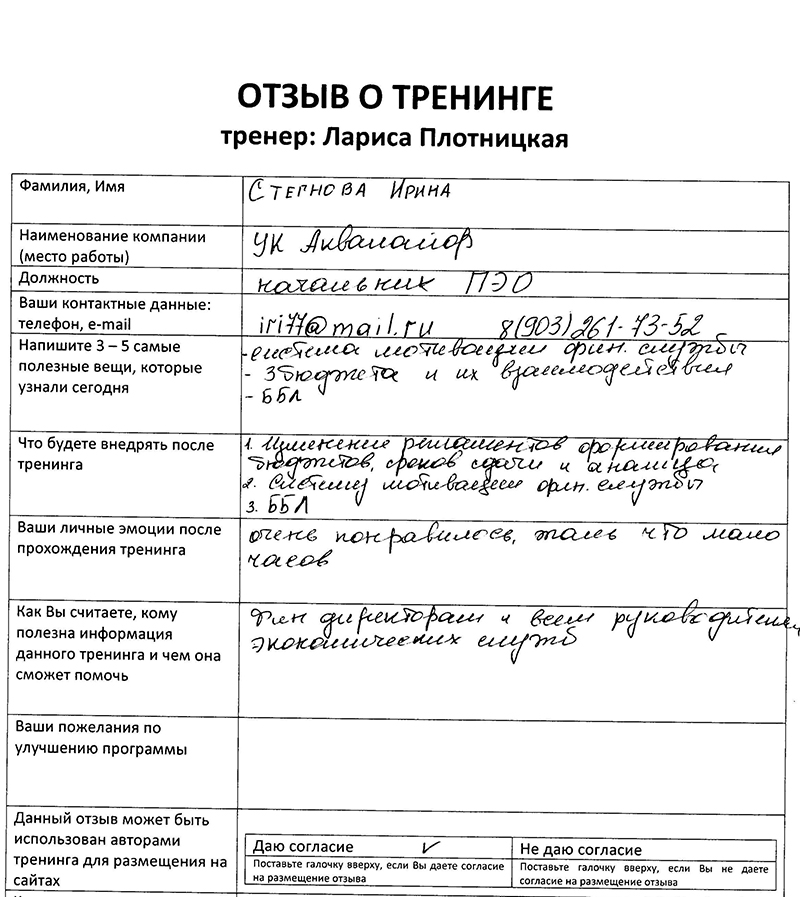 ОТЗЫВ О ТРЕНИНГЕ
тренер: Лариса Плотницкая
Фамилия, Имя
Стегнова Ирина
Наименование компании
(место работы)
УК Аквамайор
Должность
начальник ПЭО
Ваши контактные данные:
телефон, e-mail
iri77@mail.ru 8(903)261-73-52
Напишите 3 – 5 самые
полезные вещи, которые
узнали сегодня
- система мотивации фин. службы
- 3 бюджета и их взаимодействия
- ББЛ
Что будете внедрять после
тренинга
1. Изменение регламентов формирования
бюджетов, сроков сдачи и анализа
2. Систему мотивации фин. службы
3. ББЛ
Ваши личные эмоции после
прохождения тренинга
очень понравилось, жаль что мало
часов
Как Вы считаете, кому
полезна информация
данного тренинга и чем она
сможет помочь
Фин директорам и всем руководителям
экономических служб
Ваши пожелания по
улучшению программы
Данный отзыв может быть
использован авторами
тренинга для размещения на
сайтах
Даю согласие ✓
Поставьте галочку вверху, если Вы даете согласие
на размещение отзыва
Не даю согласие
Поставьте галочку вверху, если Вы не даете
согласие на размещение отзыва